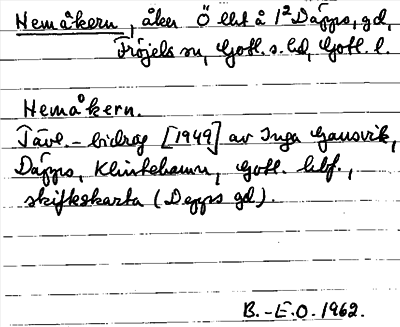 Hemåkern, åker Ö lht å 1² Däpps, gd,
Fröjels sn, Gotl. s. hd, Gotl. l.
Hemåkern.
Tävl.-bidrag [1949] av Inga Gansvik,
Däpps, Klintehamn, Gotl.
skifteskarta (Depps gd).
B.-E.O. 1962.